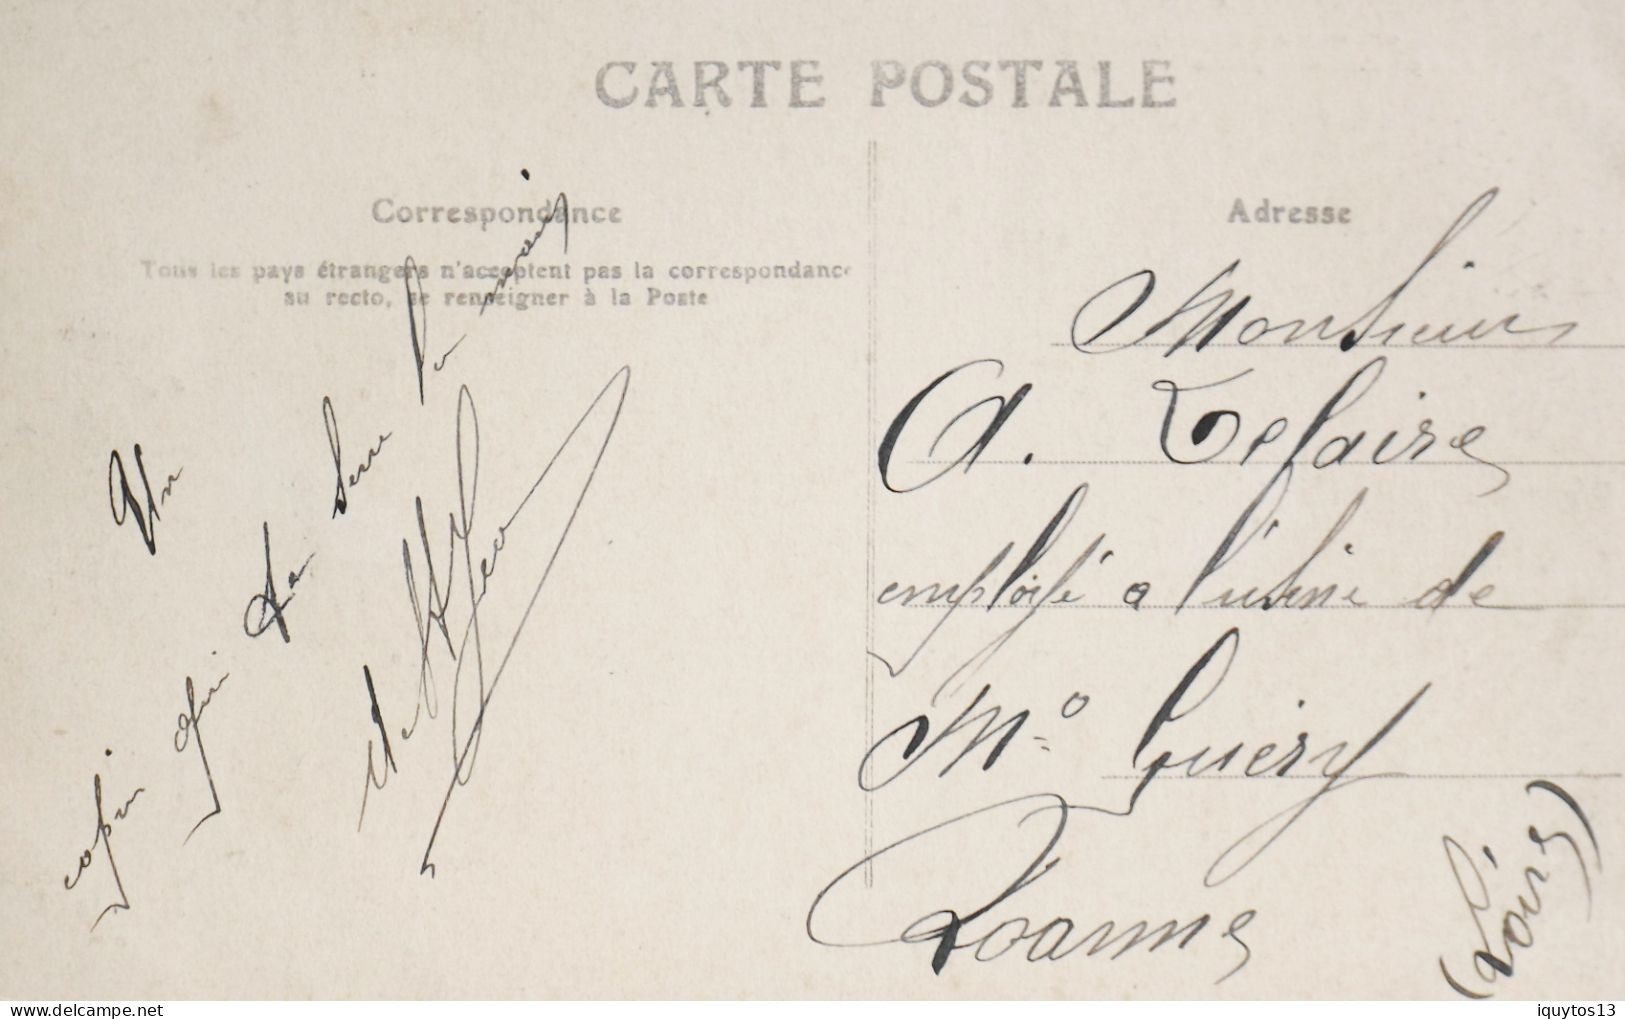 CARTE POSTALE
Correspondance
Tous les pays étrangers n'acceptent pas la correspondance
au recto, se renseigner à la Poste
Un
copin qui te serre la main
Adresse
Monsieur
A. Tefaire
employé a l'usine de
Mº Guery
Roanne
(Loire)
delcampe.net
iquytos13